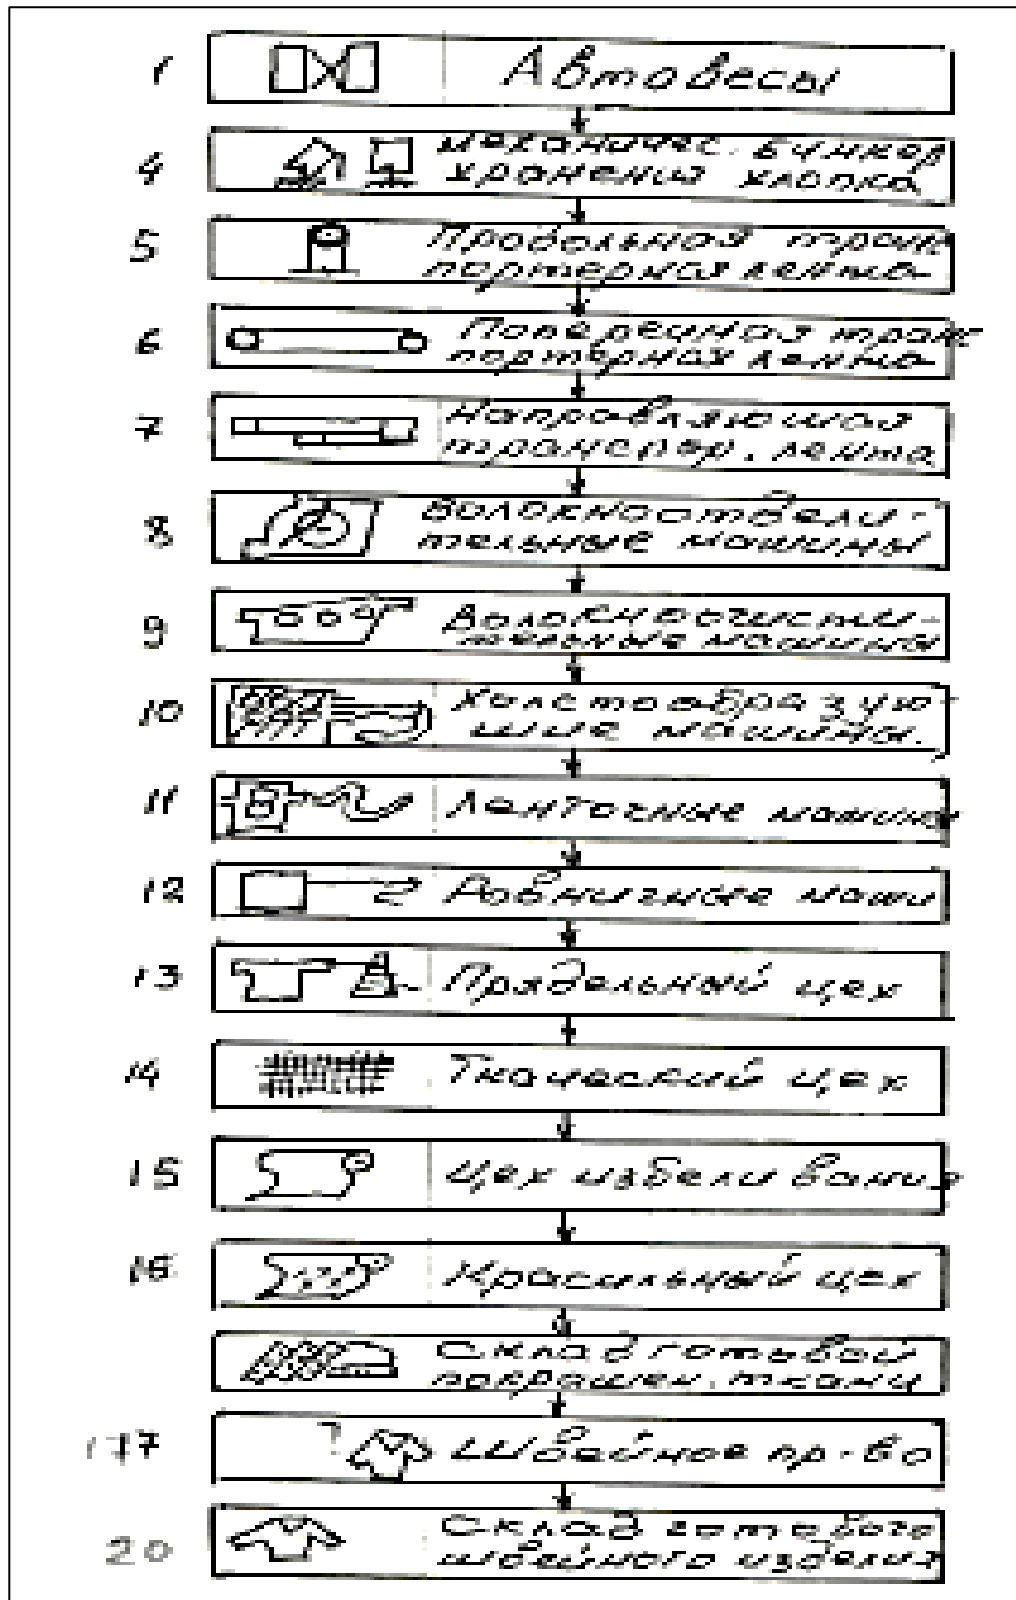 1 Автовесы
4 Механичес. бункер
хранения хлопка
5 Продольная транс
портерная лента
6 Поперечная транс
портерная лента
7 Направляющая
транспор. лента
8 Волокноотдели-
тельные машины
9 Волокноочисти-
тельные машины
10 Холстообразую-
щие машины.
11 Ленточные машины
12 Ровничные маши
13 Прядельный цех
14 Ткаческий цех
15 Цех избеливания
16 Красильный цех
Склад готовой
покрашен. ткани
177 Швейное пр-во
20 Склад готового
швейного изделия